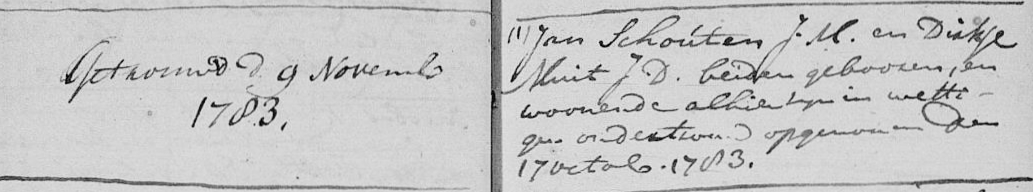 Getrouwd d 9 Novemb
1783.
(1) Jan Schouten J. M. en Dirkje
Muit J. D. beiden gebooren, en
woonende alhier zyn in wetti-
gen ondertrouw d opgenomen den
17 octob. 1783.